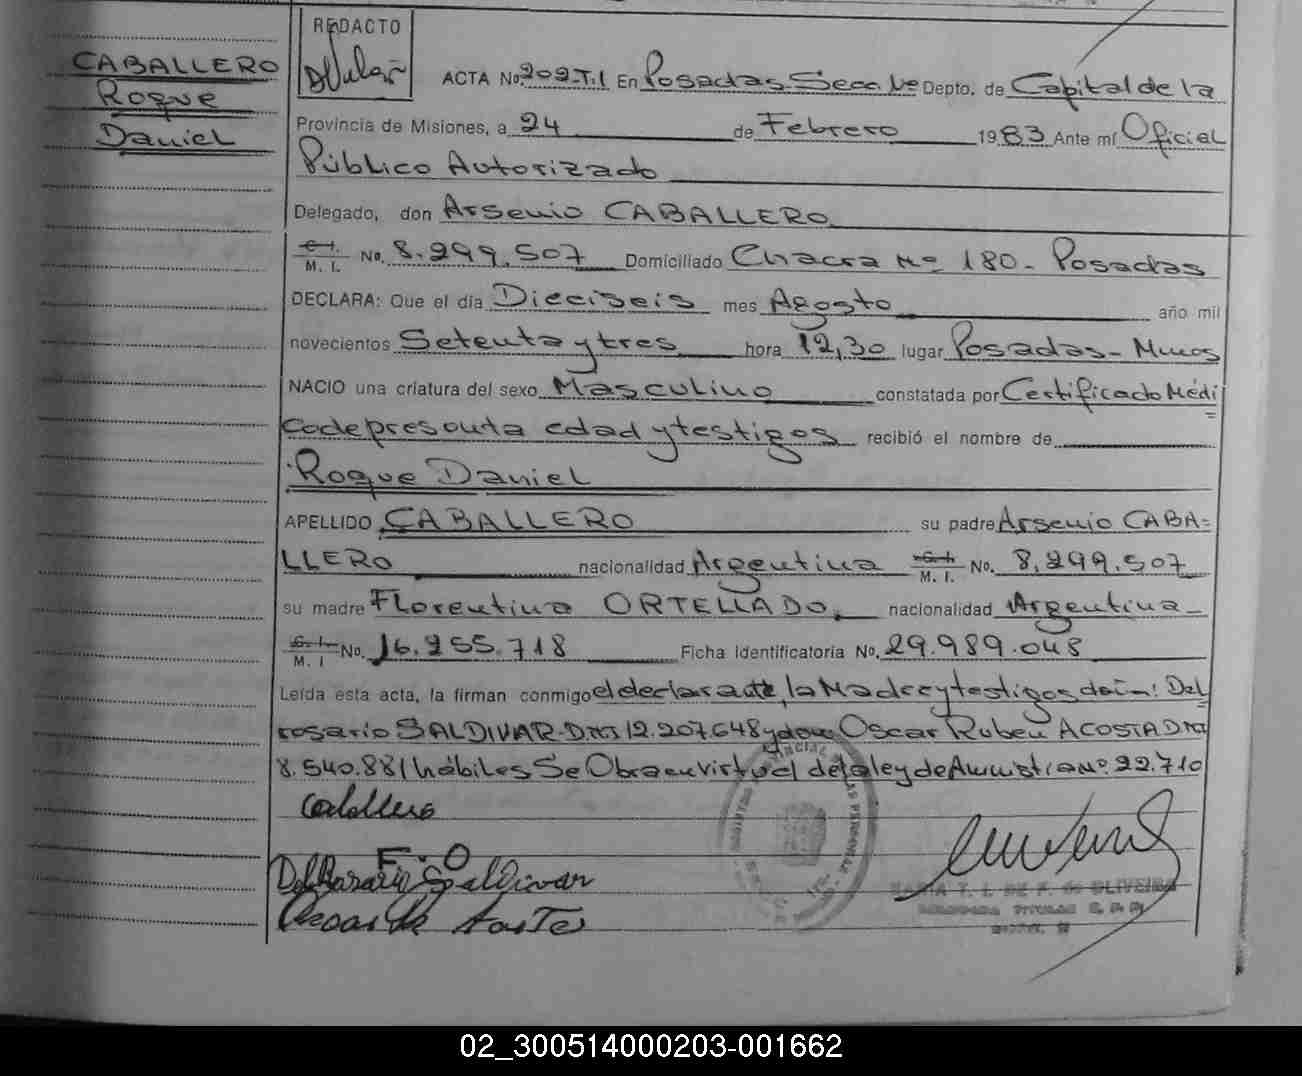 CABALLERO
Roque
Daniel
REDACTO
ACTA No. 202-T.I En Posadas-Secc. Depto. de Capital de la
Provincia de Misiones, a 24 de Febrero 1983 Ante mí Oficial
Público Autorizado
Delegado, don Arsenio CABALLERO
C. I. M. I. No. 8.299.507 Domiciliado Chacra Nº 180- Posadas
DECLARA: Que el día Dieciseis mes Agosto año mil
novecientos Setenta y tres hora 12,30 lugar Posadas-
NACIO una criatura del sexo Masculino constatada por Certificado Médi
co de presunta edad y testigos recibió el nombre de
Roque Daniel
APELLIDO CABALLERO su padre Arsenio CABA=
LLERO nacionalidad Argentina C. I. M. I. No. 8.299.507
su madre Florentina ORTELLADO, nacionalidad Argentina-
C. I. M. I No. 16.255.718 Ficha Identificatoria No. 29.989.048
Leída esta acta, la firman conmigo el declarante, la Madre y testigos doña: Del
rosario SALDIVAR-DNI 12.207.648 y don Oscar Ruben ACOSTA DNI
8.540.881 hábiles Se Obra en virtud de la ley de Amnistia Nº. 22.710
Caballero
F. O
Del Rosario Saldivar
MARIA T. I. DE F. de OLIVEIRA
02_300514000203-001662